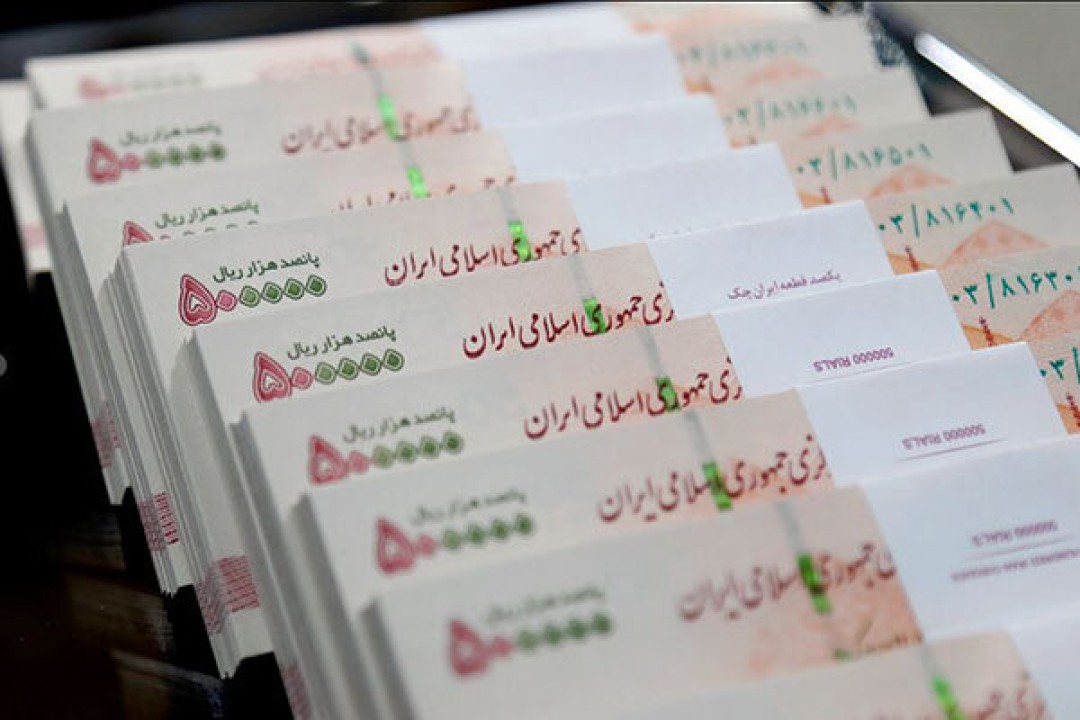 پانصد هزار ریال
جمهوری اسلامی ایران
۵۰۰۰۰۰
۸۱۶۶۰۱
پانصد هزار ریال
۵۰۰۰۰۰
۰۳/۸۱۶۵۰۱
پانصد هزار ریال
جمهوری اسلامی ایران
۵۰۰۰۰۰
۰۳/۸۱۶۴۰۱
پانصد هزار ریال
جمهوری اسلامی ایران
۵۰۰۰۰۰
یکصد قطعه ایران چک
۰۳/۸۱۶۳۰
پانصد هزار ریال
جمهوری اسلامی ایران
۵۰۰۰۰۰
500000 RIALS
پانصد هزار ریال
جمهوری اسلامی ایران
۵۰۰۰۰۰
500000 RIALS
پانصد هزار ریال
جمهوری اسلامی ایران
۵۰۰۰۰۰
500000 RIALS